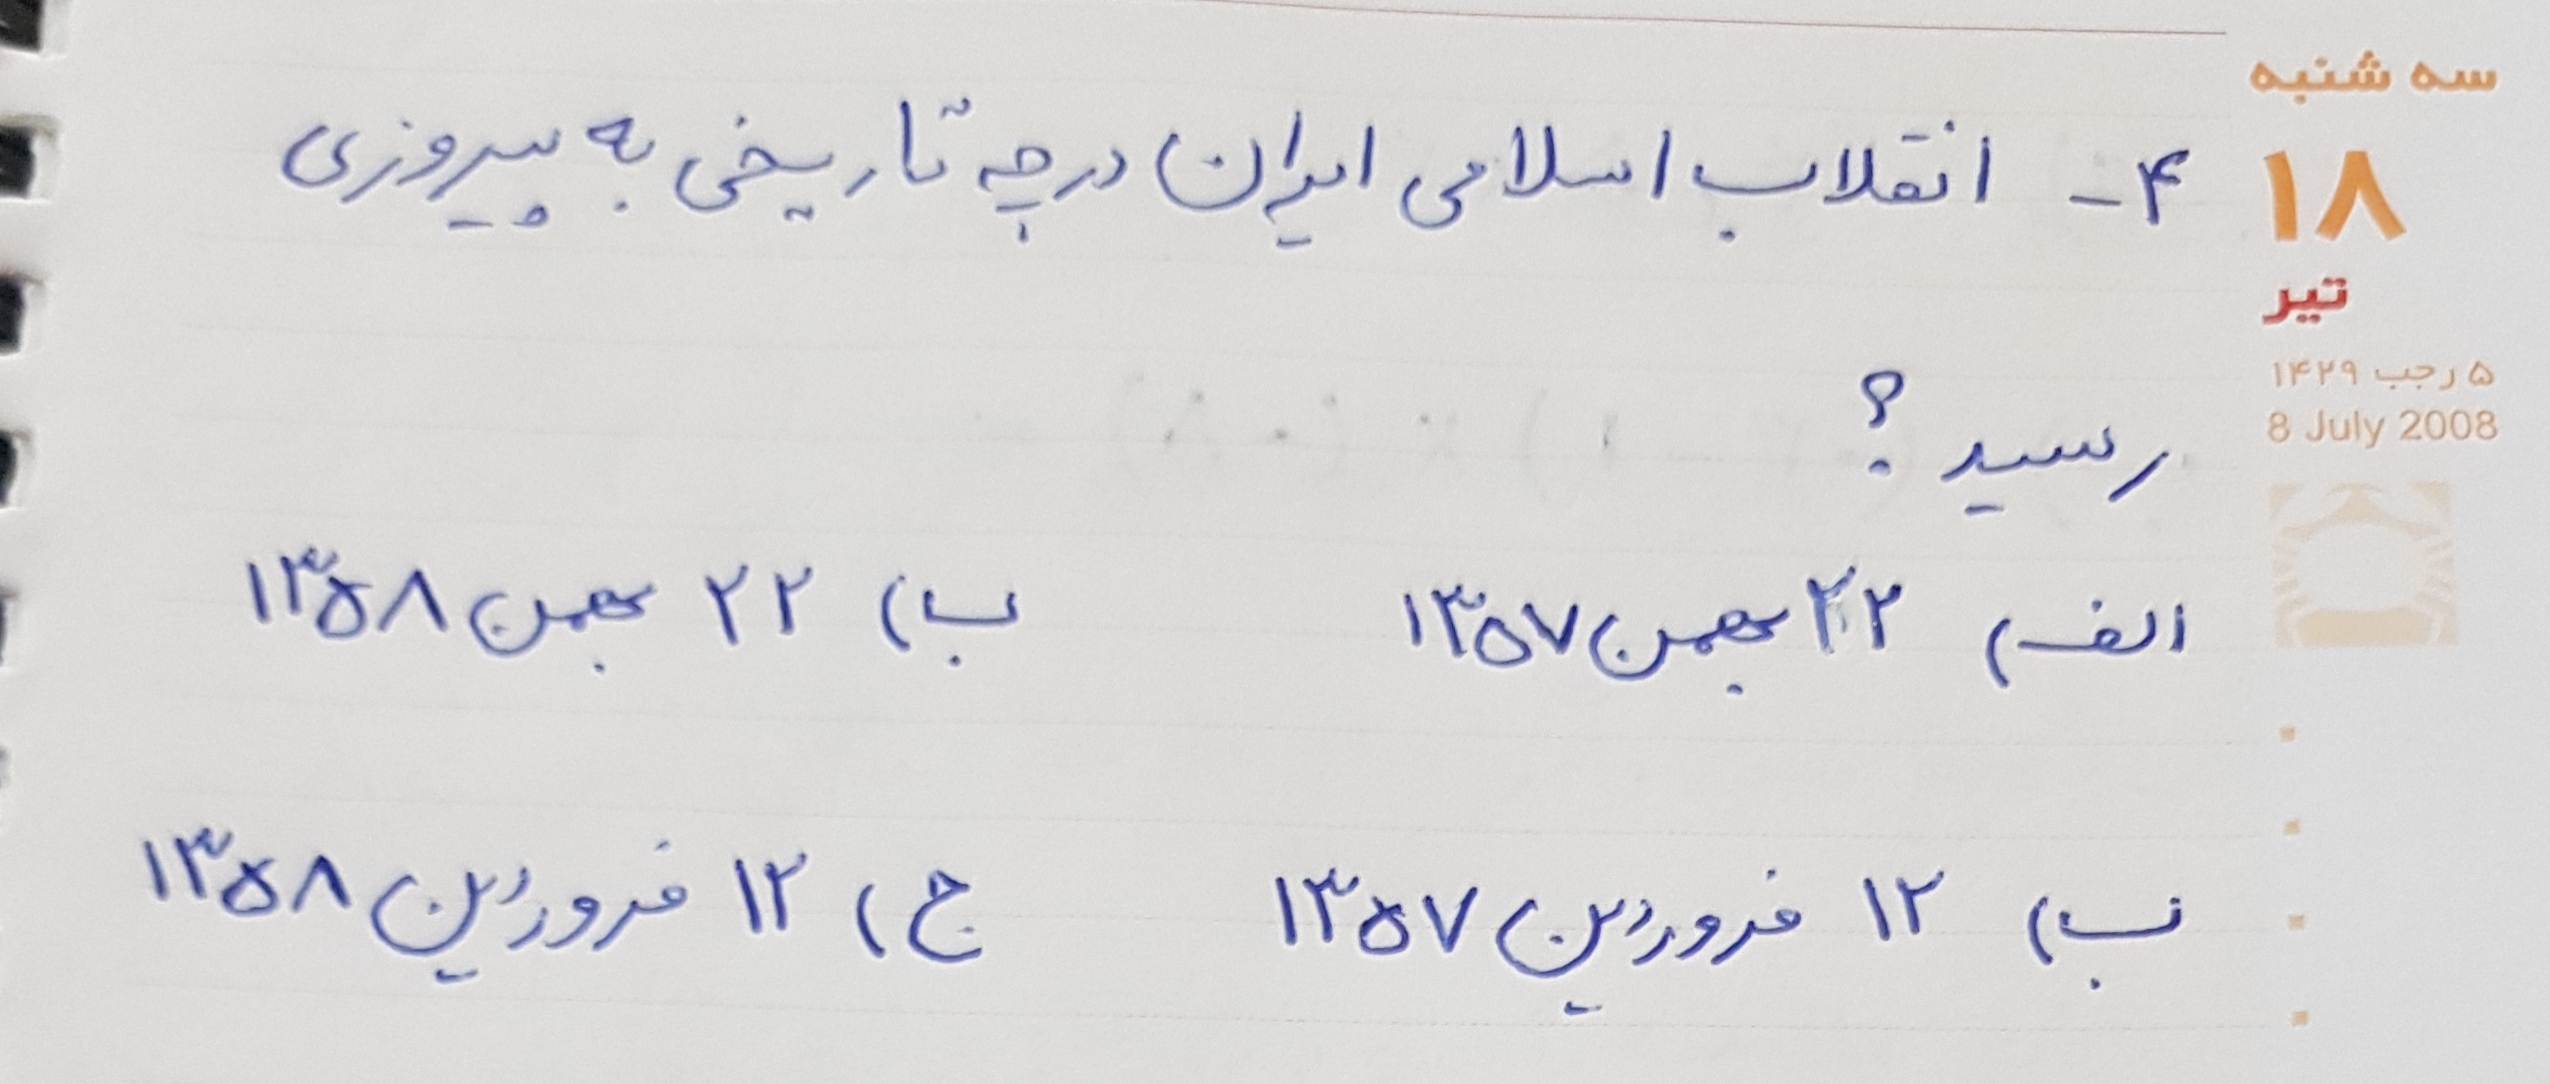 سه شنبه
۱۸
تیر
۵ رجب ۱۴۲۹
8 July 2008
۴- انقلاب اسلامی ایران در چه تاریخی به پیروزی
رسید ؟
الف) ۲۲ بهمن ۱۳۵۷ ب) ۲۲ بهمن ۱۳۵۸
ب) ۱۲ فروردین ۱۳۵۷ ج) ۱۲ فروردین ۱۳۵۸